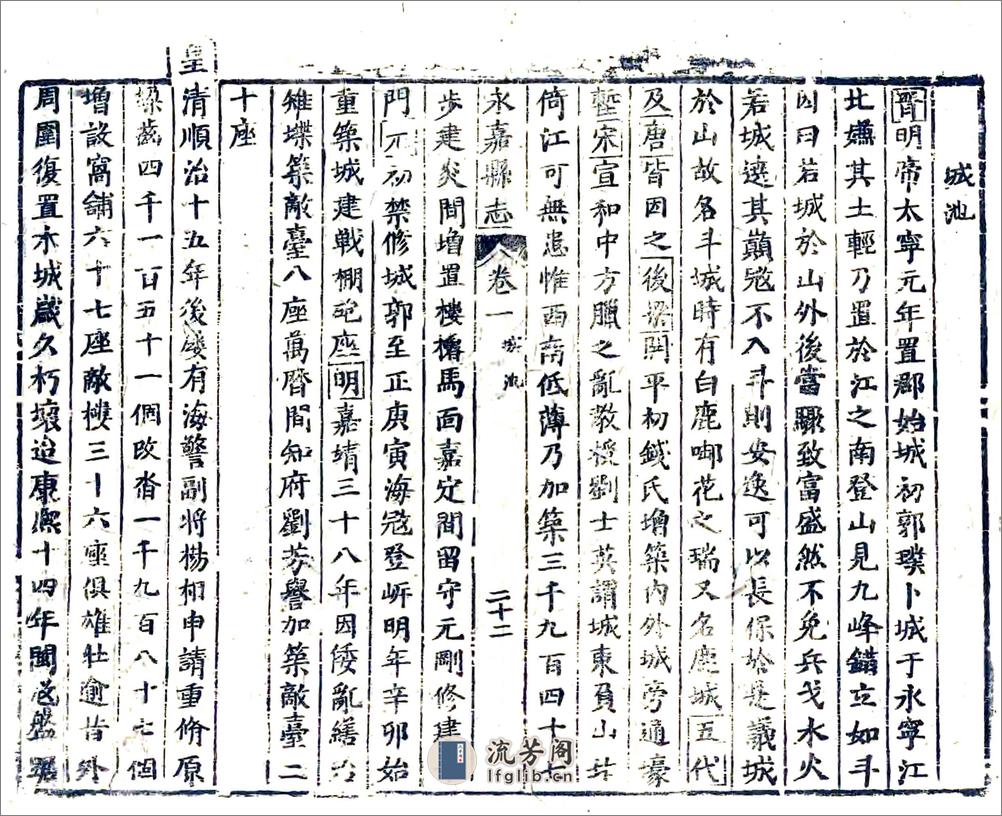 城池
晉明帝太寧元年置郡始城初郭璞卜城于永寧江
北嫌其土輕乃置於江之南登山見九峰錯立如斗
因曰若城於山外後當驟致富盛然不免兵戈水火
若城遶其巔寇不入斗則安逸可以長保於是議城
於山故名斗城時有白鹿啣花之瑞又名鹿城五代
及唐皆因之後梁開平初錢氏增築內外城旁通壕
塹宋宣和中方臘之亂教授劉士英謂城東負山北
倚江可無患惟西南低薄乃加築三千九百四十七
永嘉縣志 卷一 城池 二十二
步建炎間增置樓櫓馬面嘉定間留守元剛修建
門元初禁修城郭至正庚寅海寇登岍明年辛卯始
重築城建戰棚砲座明嘉靖三十八年因倭亂繕治
雉堞築敵臺八座萬曆間知府劉芳譽加築敵臺二
十座
皇清順治十五年後屢有海警副將楊相申請重脩原
梁齒四千一百五十一個改沓一千九百八十七個
增設窩鋪六十七座敵樓三十六座俱雄壯逾昔外
周圍復置木城歲久朽壞迨康熙十四年閩
流芳阁
lfglib.cn